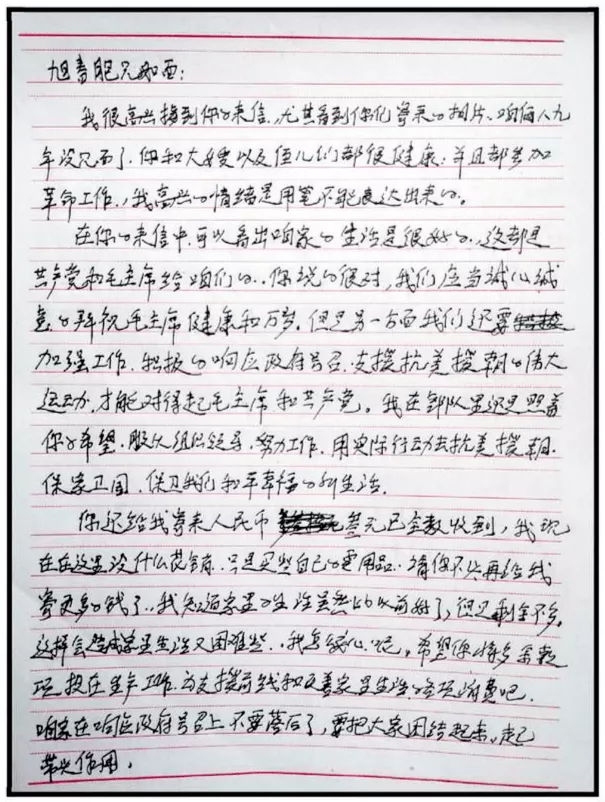 旭春胞兄如面:
我很高兴接到你的来信,尤其看到你们寄来的相片、咱俩八九
年没见面了,你和大嫂以及侄儿们都很健康,并且都参加
革命工作,我高兴的情绪是用笔不能表达出来的。
在你的来信中,可以看出咱家的生活是很好的,这都是
共产党和毛主席给咱们的,你说的很对,我们应当诚心诚
意的拜祝毛主席健康和万岁。但是另一方面我们还要
加强工作,积极的响应政府号召,支援抗美援朝的伟大
运动,才能对得起毛主席和共产党。我在部队里还是照着
你的希望,服从组织领导,努力工作,用实际行动去抗美援朝,
保家卫国,保卫我们和平幸福的新生活。
你还给我寄来人民币叁元已全数收到,我现
在在这里没什么花销,只是买些自己的需用品,请你不必再给我
寄更多的钱了,我知道家里的生活虽然比以前好了,但是剩余不多,
这样会造成家里生活又困难些,我怎忍心呢。希望你将多余款
项投在生产工作,为支援前线和改善家里生活的各项消费吧。
咱家在响应政府号召上不要落后了,要把大家团结起来,起
带头作用,